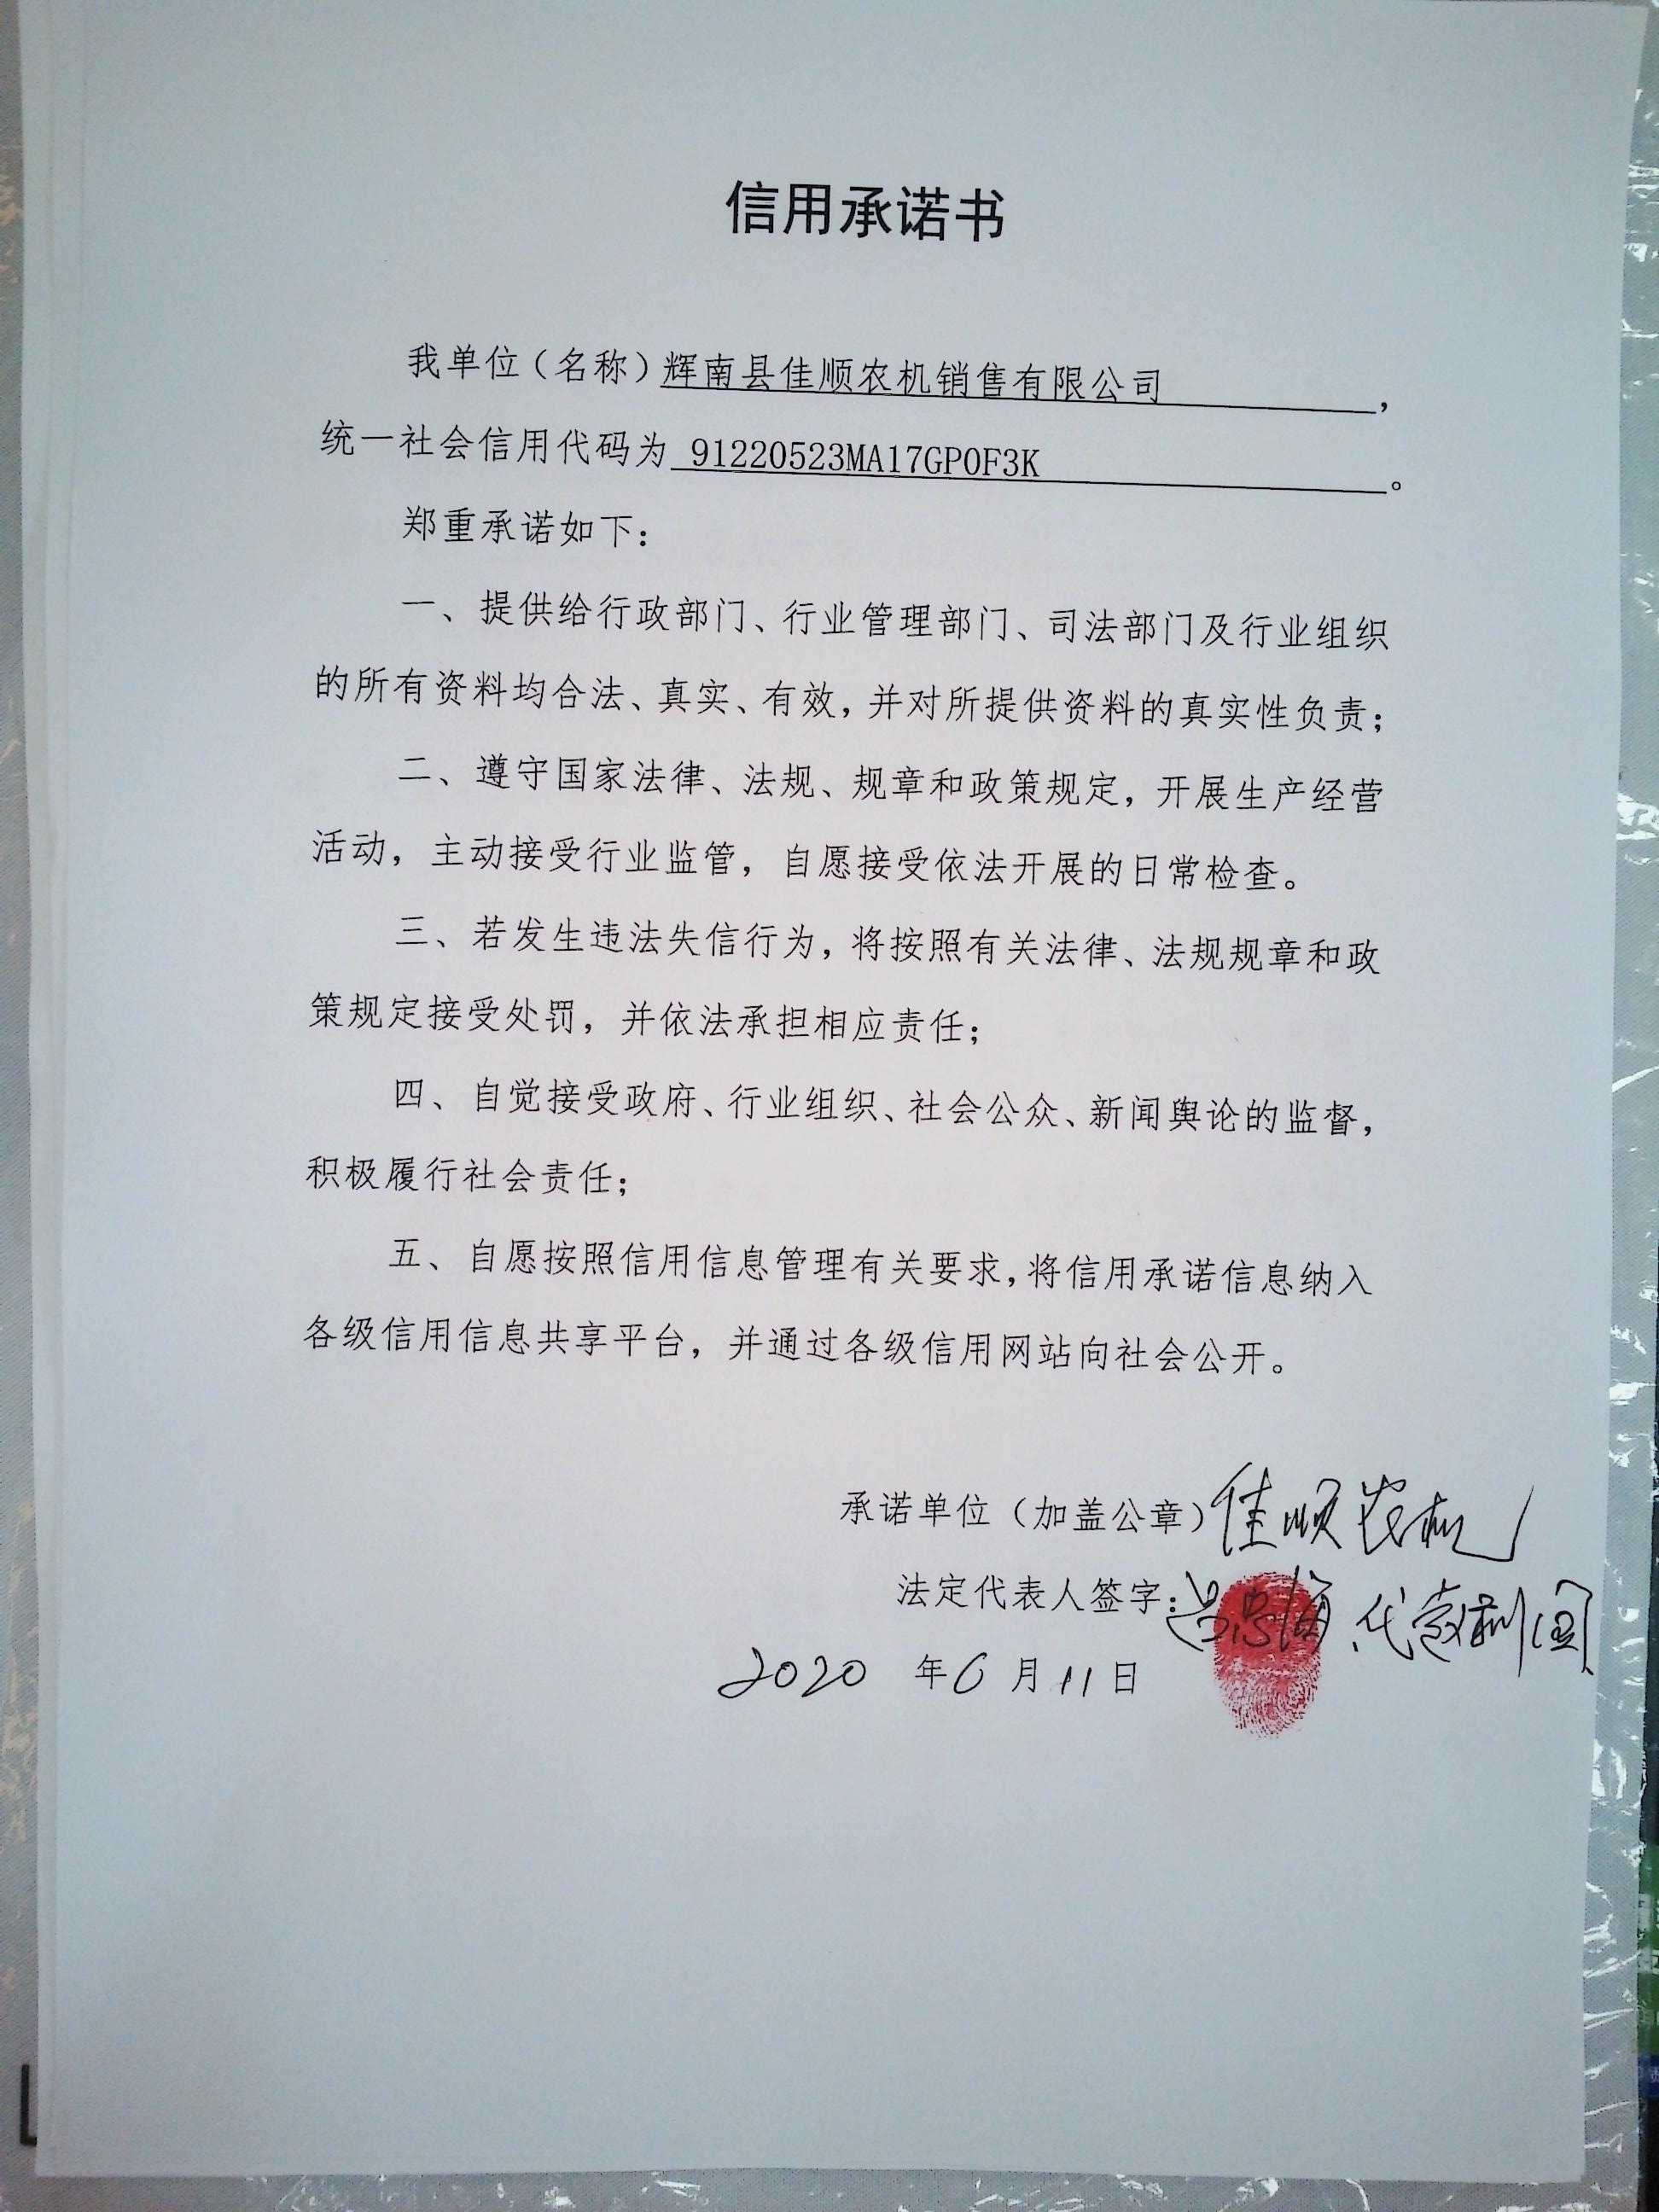 信用承诺书
我单位（名称）辉南县佳顺农机销售有限公司，
统一社会信用代码为 91220523MA17GP0F3K 。
郑重承诺如下：
一、提供给行政部门、行业管理部门、司法部门及行业组织
的所有资料均合法、真实、有效，并对所提供资料的真实性负责；
二、遵守国家法律、法规、规章和政策规定，开展生产经营
活动，主动接受行业监管，自愿接受依法开展的日常检查。
三、若发生违法失信行为，将按照有关法律、法规规章和政
策规定接受处罚，并依法承担相应责任；
四、自觉接受政府、行业组织、社会公众、新闻舆论的监督，
积极履行社会责任；
五、自愿按照信用信息管理有关要求，将信用承诺信息纳入
各级信用信息共享平台，并通过各级信用网站向社会公开。
承诺单位（加盖公章）佳顺农机
法定代表人签字：
2020 年 6 月 11 日